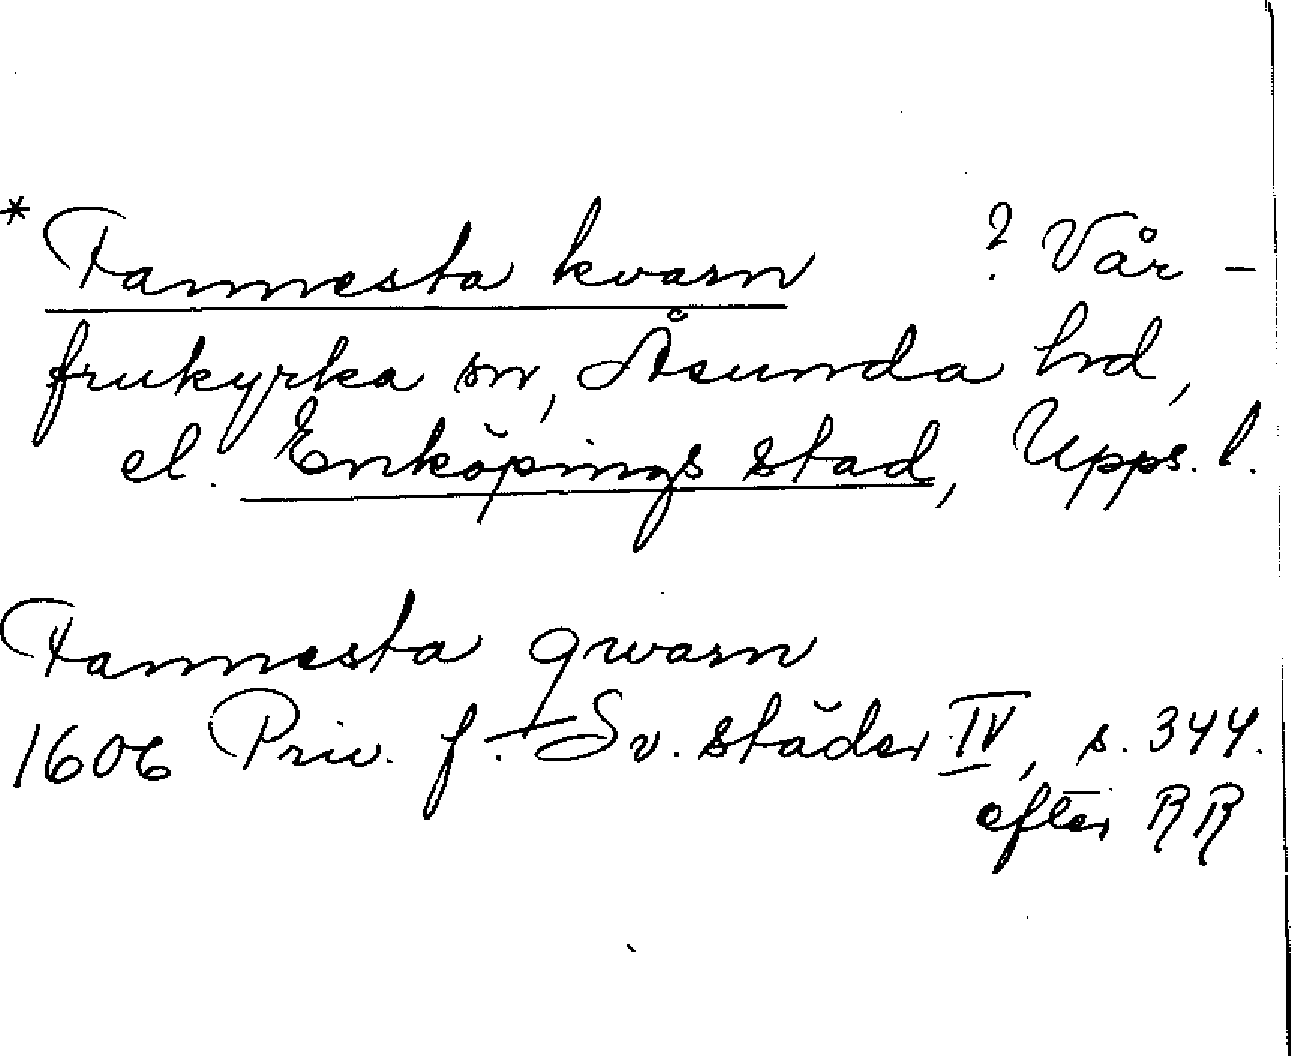 * Fannesta kvarn ? Vår-
frukyrka sn, Åsunda hd,
el. Enköpings stad, Upps. l.
Fannesta qwarn
1606 Priv. f. Sv. städer IV, s. 344.
efter RR